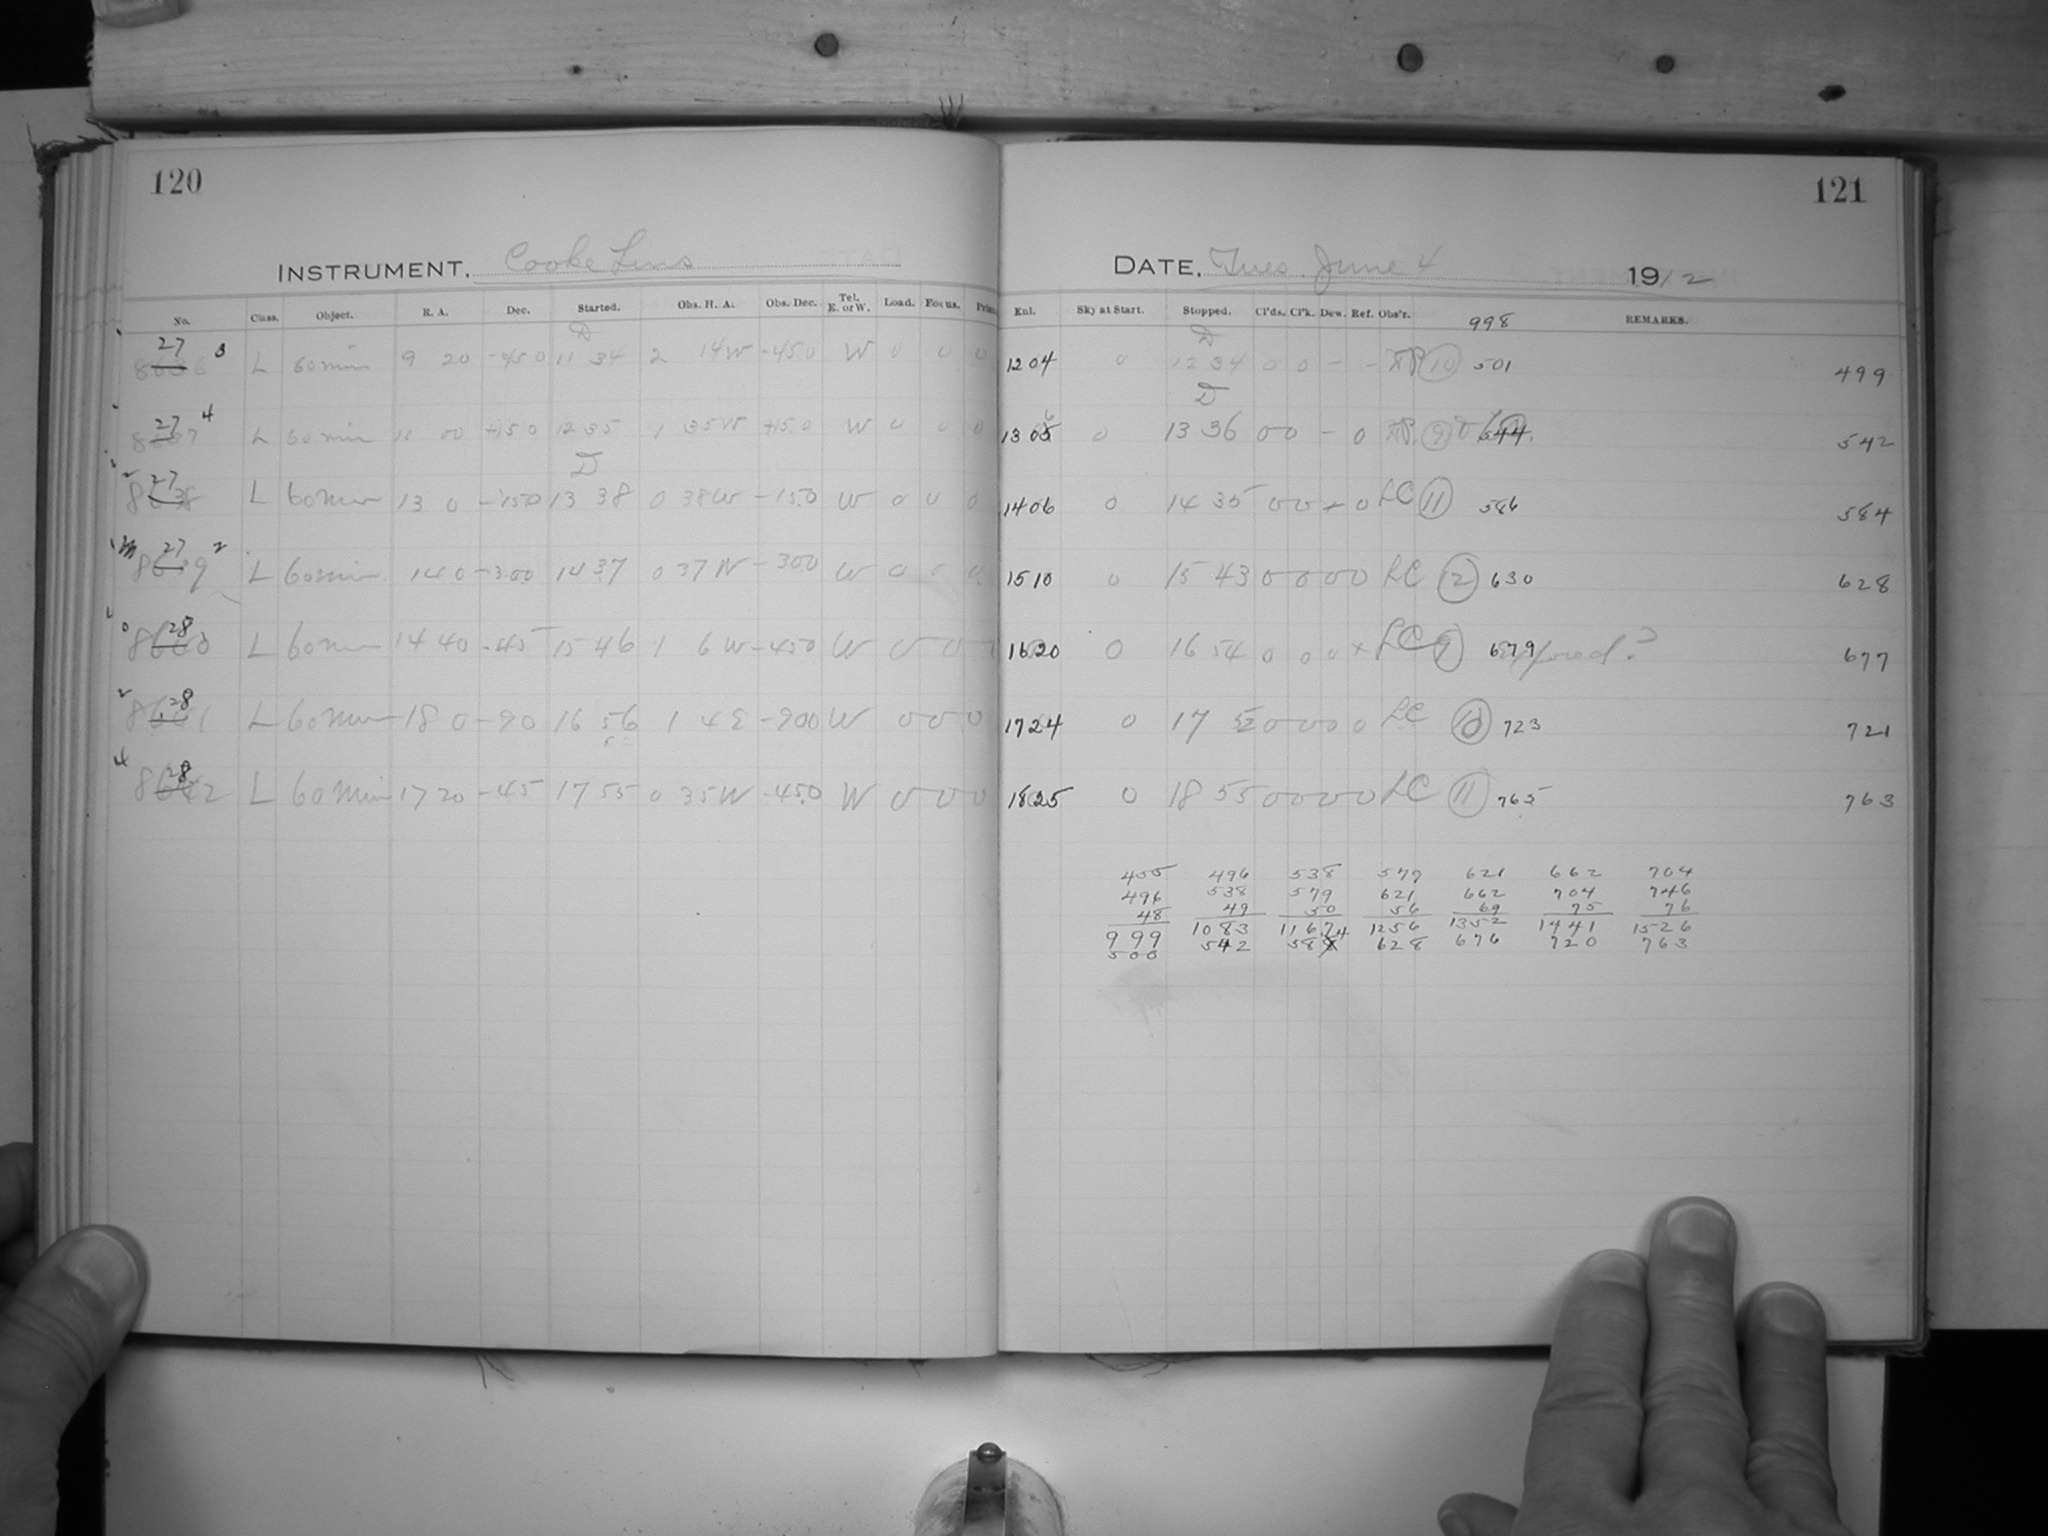 120
INSTRUMENT, Cooke Lens
No. Class. Object. R. A. Dec. Started. Obs. H. A. Obs. Dec. Tel. E. or W. Load. Focus.
27 3 L 60 min 9 20 -450 11 34 2 14W -450 W 0 0 0
27 4 L 60 min 11 00 +150 12 35 1 35W +150 W 0 0 0
27 L 60 min 13 0 -150 13 38 0 38W -150 W 0 0 0
27 2 L 60 min 14 0 -300 14 37 0 37W -300 W 0 0 0
28 L 60 min 14 40 -45 15 46 1 6W -450 W 0 0 0
28 L 60 min 18 0 -90 16 56 1 4E -900 W 0 0 0
28 L 60 min 17 20 -45 17 55 0 35W -450 W 0 0 0
121
DATE, Tues. June 4 1912
Enl. Sky at Start. Stopped. Cl'ds. Cl'k. Dew. Ref. Obs'r. 998 REMARKS.
1204 0 12 34 0 0 - - 10 501 499
0 13 36 0 0 - 0 9 544 542
1406 0 14 35 0 0 + 0 LC 11 586 584
1510 0 15 43 0 0 0 0 LC 12 630 628
1620 0 16 54 0 0 0 x LC 9 679 677
1724 0 17 52 0 0 0 0 LC 10 723 721
1825 0 18 55 0 0 0 0 LC 11 765 763
455 496 538 579 621 662 704
496 538 579 621 662 704 746
48 49 50 56 69 75 76
999 1083 1167 1256 1352 1441 1526
500 542 584 628 676 720 763